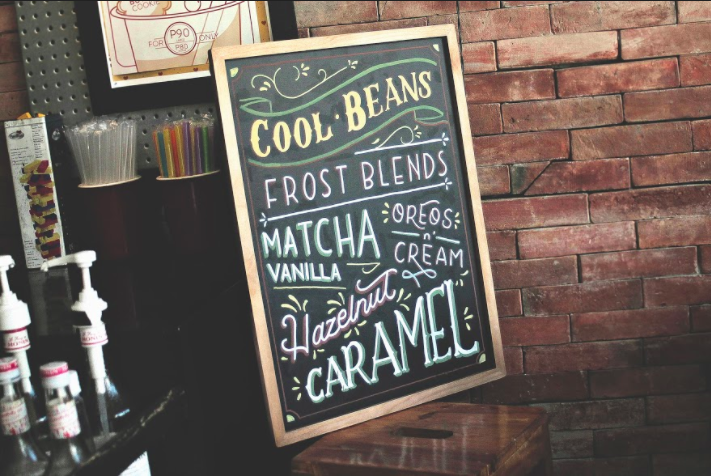 COOKIE
FOR P90 ONLY
P80
COOL·BEANS
FROST BLENDS
MATCHA
VANILLA
OREOS
n'
CREAM
Hazelnut
CARAMEL